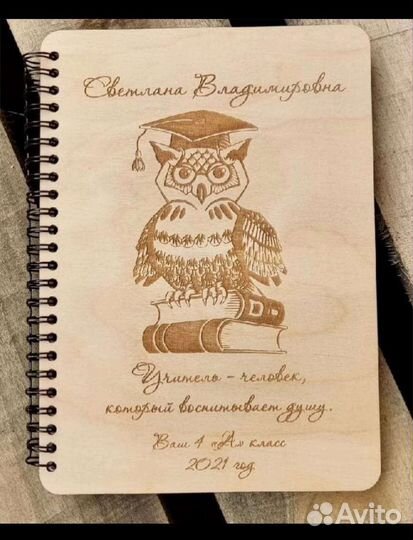 Светлана Владимировна
D
Учитель - человек,
который воспитывает душу.
Ваш 4 «А» класс
2021 год
Avito